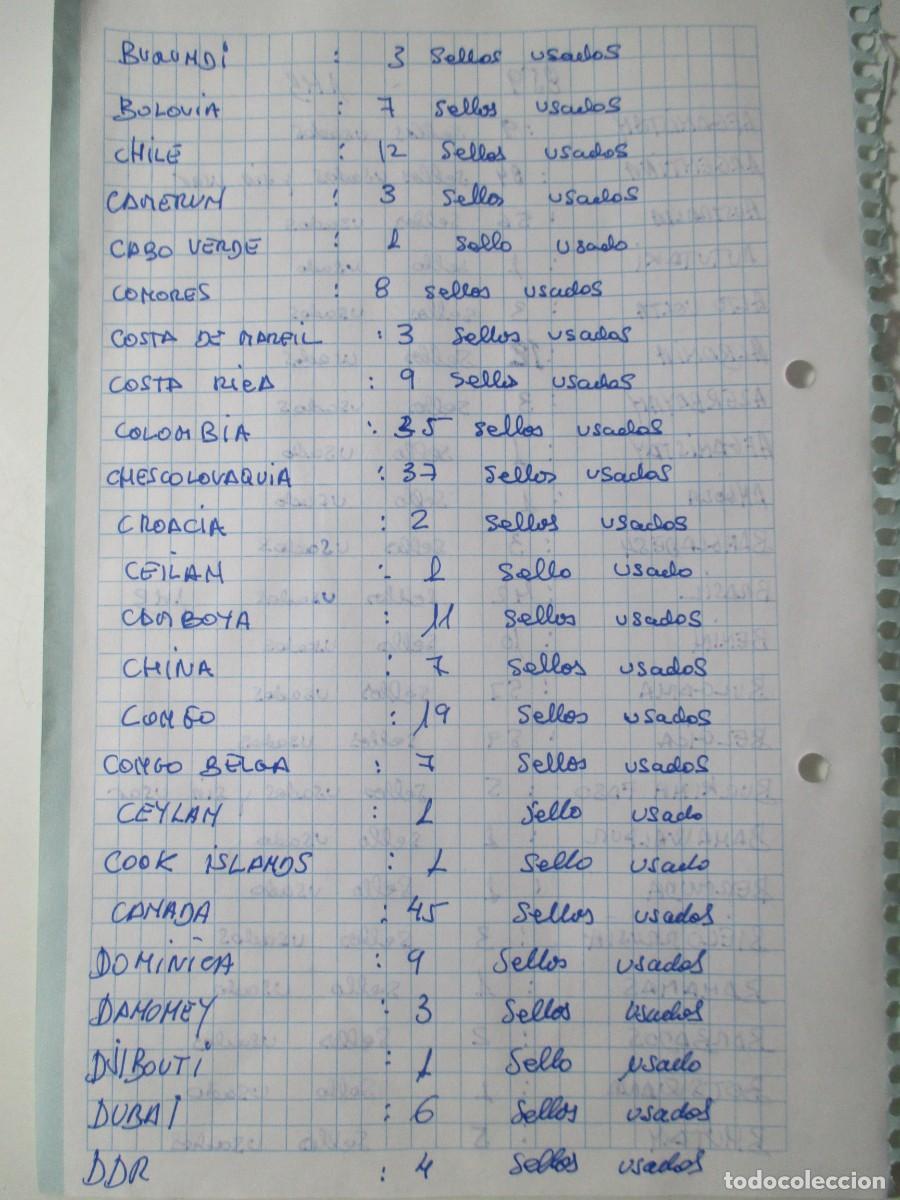 BURUNDI : 3 Sellos usados
BOLOVIA : 7 Sellos usados
CHILE : 12 Sellos usados
CAMERUN : 3 Sellos usados
CABO VERDE : 1 Sello usado
COMORES : 8 Sellos usados
COSTA DE MARFIL : 3 Sellos usados
COSTA RICA : 9 Sellos usados
COLOMBIA : 35 Sellos usados
CHESCOLOVAQUIA : 37 Sellos usados
CROACIA : 2 Sellos usados
CEILAN : 1 Sello usado
CAMBOYA : 11 Sellos usados
CHINA : 7 Sellos usados
CONGO : 19 Sellos usados
CONGO BELGA : 7 Sellos usados
CEYLAN : 1 Sello usado
COOK ISLANDS : 1 Sello usado
CANADA : 45 Sellos usados
DOMINICA : 9 Sellos usados
DAHOMEY : 3 Sellos usados
DJIBOUTI : 1 Sello usado
DUBAI : 6 Sellos usados
DDR : 4 Sellos usados
todocoleccion